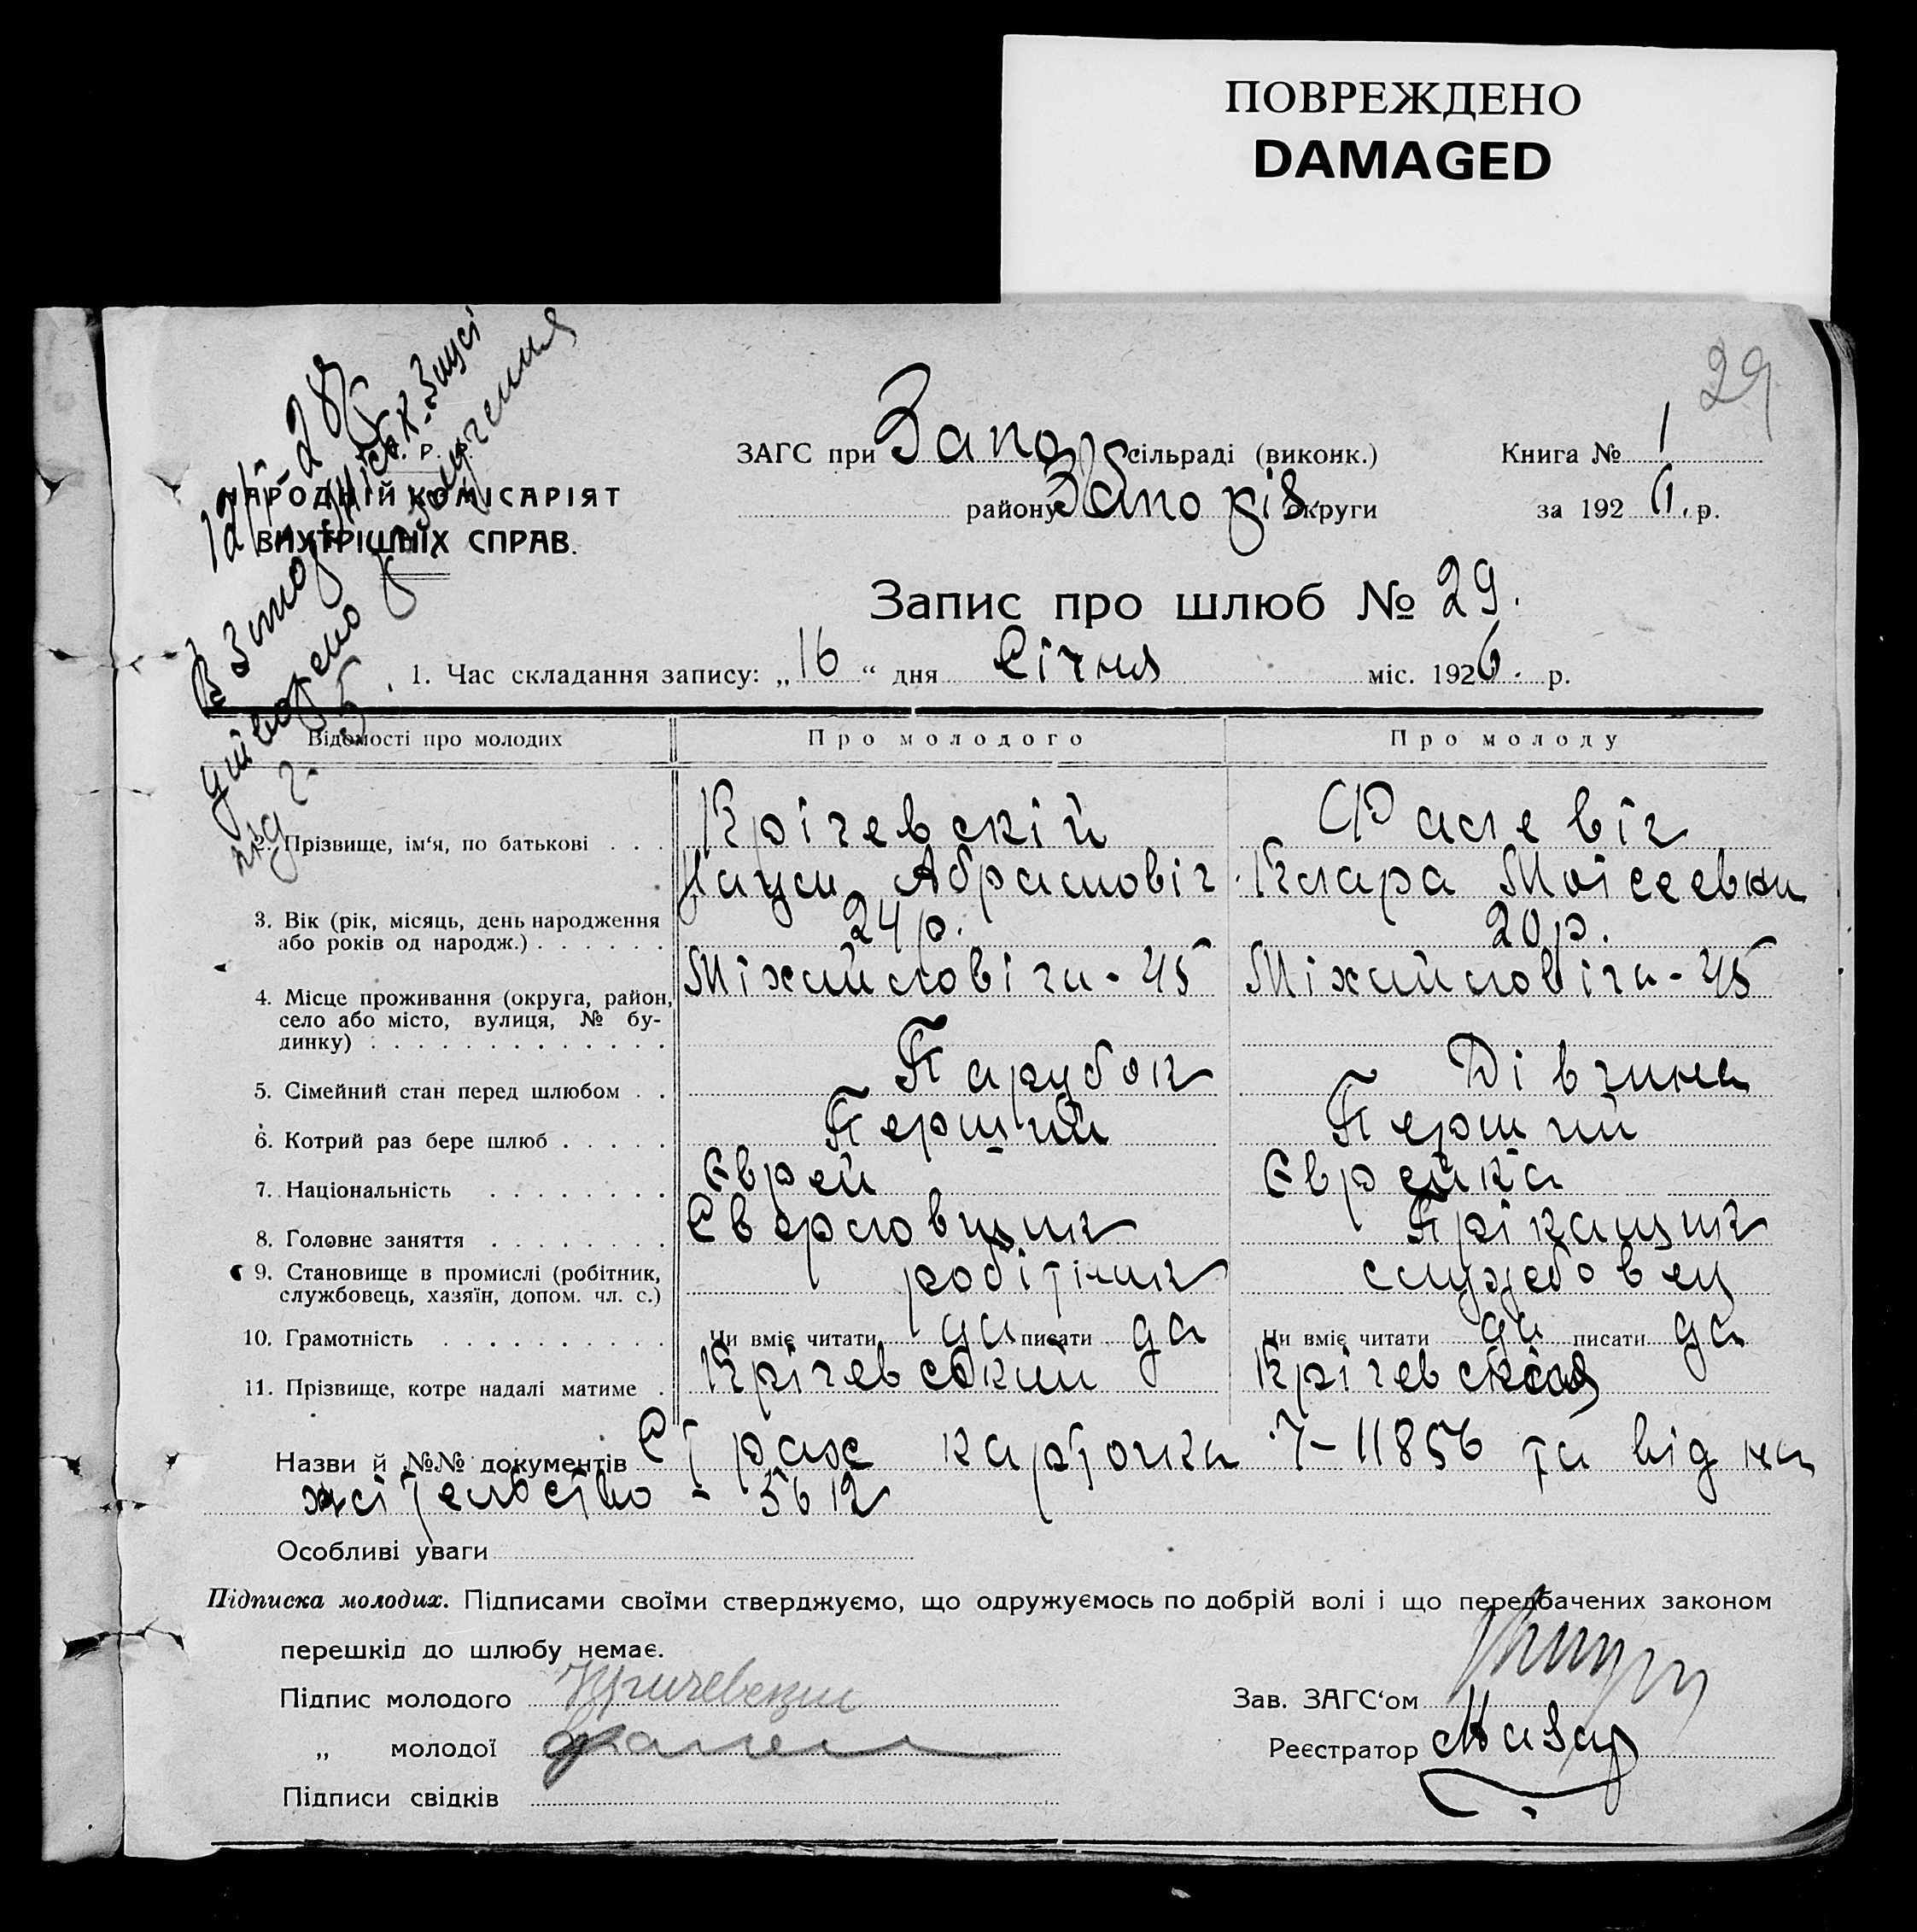 ПОВРЕЖДЕНО
DAMAGED
29
У. Р.
НАРОДНІЙ КОМІСАРІЯТ
ВНУТРІШНІХ СПРАВ.
ЗАГС при Запор сільраді (виконк.) Книга № 1
району Запорів. округи за 192 6. р.
Запис про шлюб № 29.
1. Час складання запису: „ 16 “ дня Січня міс. 192 6. р.
Відомості про молодих Про молодого Про молоду
2. Прізвище, ім‘я, по батькові . . . Крічевскій Фалевіч
Наум Абрамовіч Клара Моісеевна
3. Вік (рік, місяць, день народження або років од народж.) . . . . . . 24 р. 20 р.
4. Місце проживання (округа, район, село або місто, вулиця, № будинку) . . . . . . . . . . . . . Міхайловіча - 45 Міхайловіча - 45
5. Сімейний стан перед шлюбом . . Парубок Дівчина
6. Котрий раз бере шлюб . . . . . Перший Перший
7. Національність . . . . . . . . Єврей Єврейка
8. Головне заняття . . . . . . . . Сверловщик Прікащик
9. Становище в промислі (робітник, службовець, хазяїн, допом. чл. с.) робітник службовец
10. Грамотність . . . . . . . . . . Чи вміє читати да писати да Чи вміє читати да писати да
11. Прізвище, котре надалі матиме . Крічевский Крічевская
Назви й №№ документів Страх карточка 7-11856 та від на
жітельство - 5612
Особливі уваги
Підписка молодих. Підписами своїми стверджуємо, що одружуємось по добрій волі і що передбачених законом
перешкід до шлюбу немає.
Підпис молодого Кричевский Зав. ЗАГС‘ом
„ молодої Фалев Реєстратор Мазар
Підписи свідків